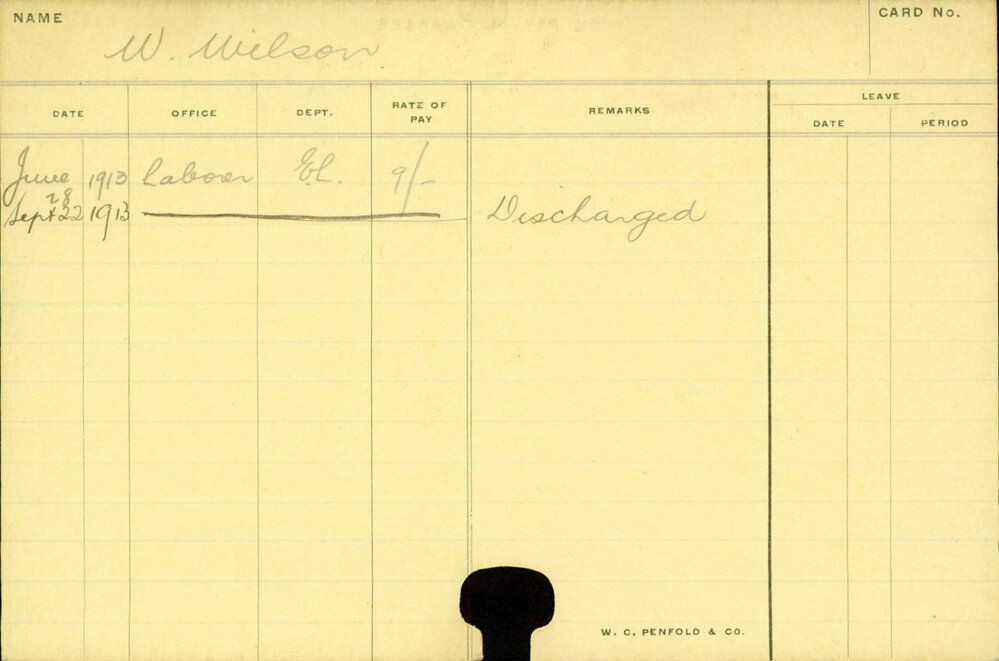 NAME
CARD No.
W. Wilson
DATE OFFICE DEPT. RATE OF PAY REMARKS LEAVE
DATE PERIOD
June 1913 Laborer 9/-
28
Sept 22 1913 Discharged
W. C. PENFOLD & CO.